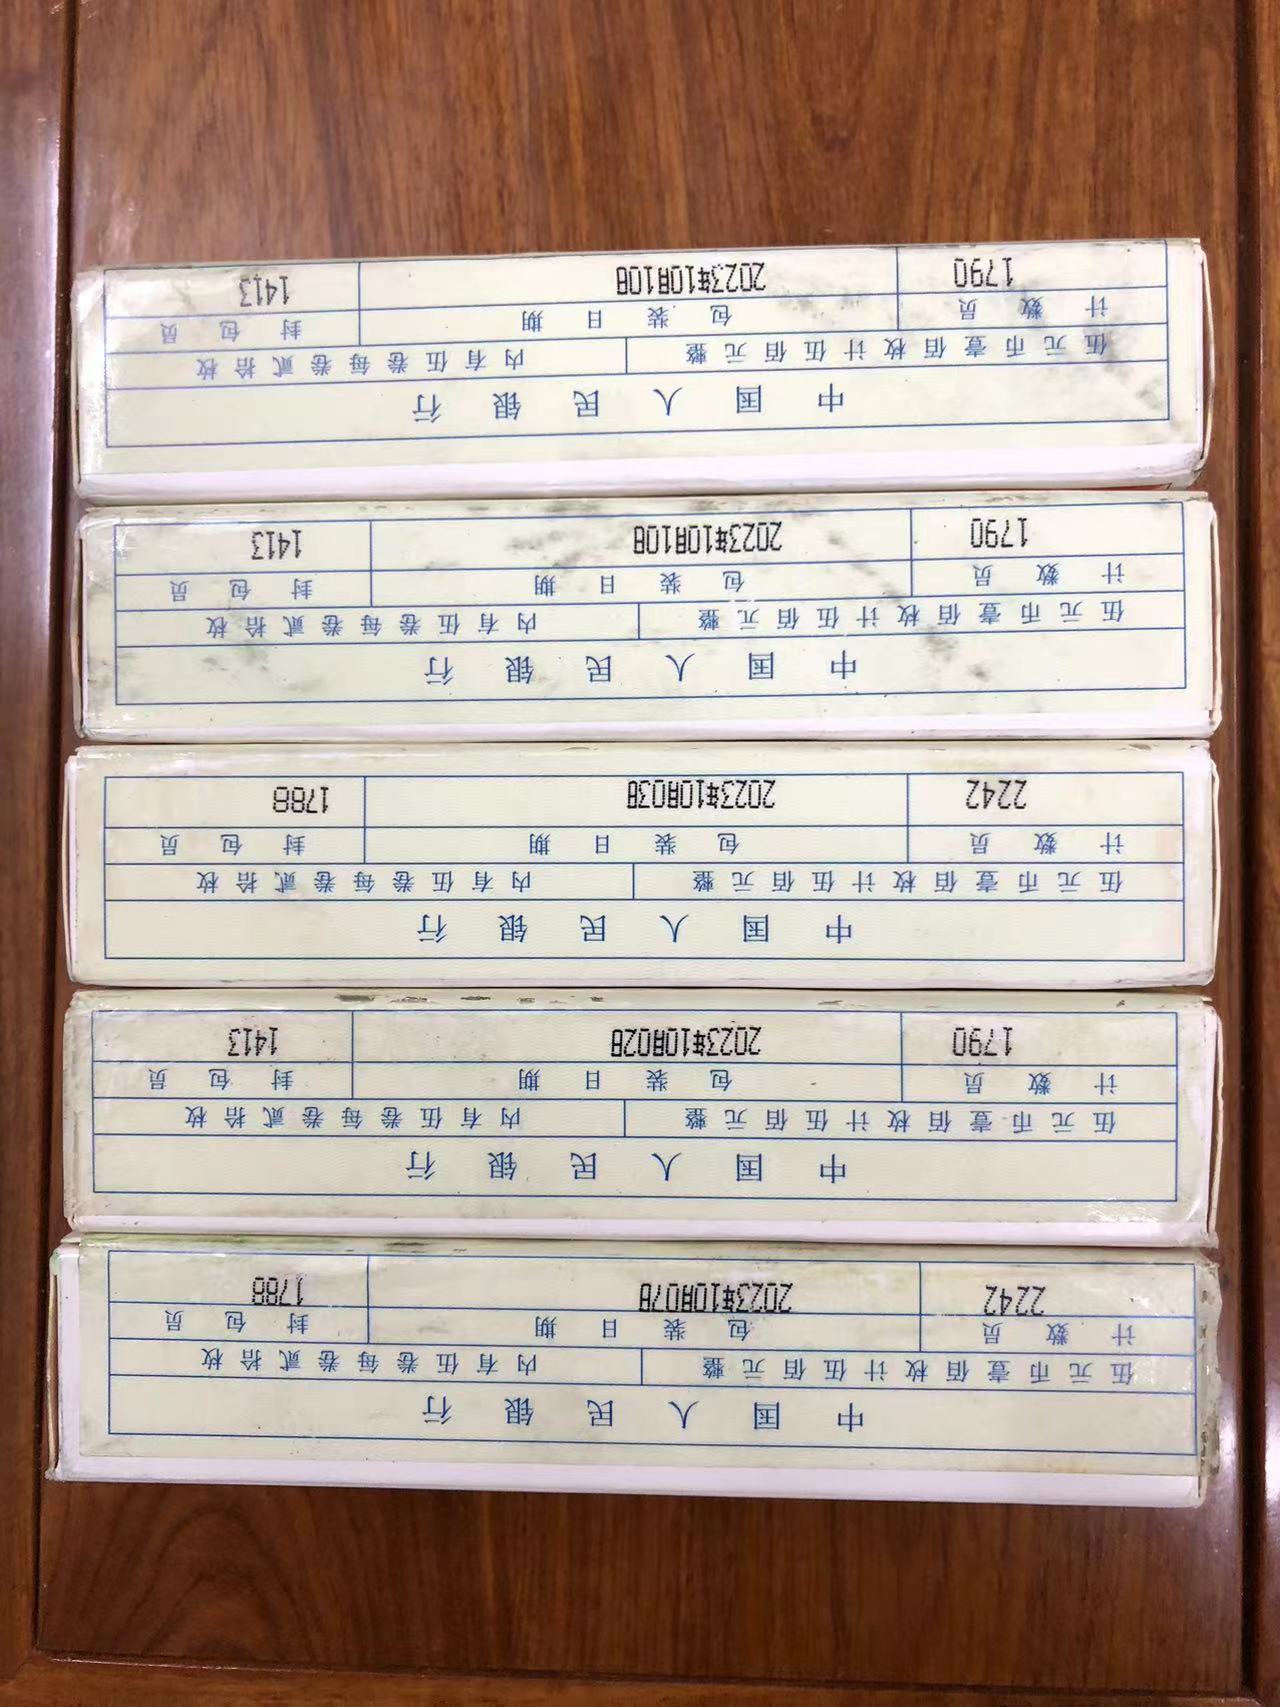 中国人民银行
伍元币壹佰枚计伍佰元整 内有伍卷每卷贰拾枚
计数员 包装日期 封包员
2242 2023年10月07日 1788
中国人民银行
伍元币壹佰枚计伍佰元整 内有伍卷每卷贰拾枚
计数员 包装日期 封包员
1790 2023年10月02日 1413
中国人民银行
伍元币壹佰枚计伍佰元整 内有伍卷每卷贰拾枚
计数员 包装日期 封包员
2242 2023年10月03日 1788
中国人民银行
伍元币壹佰枚计伍佰元整 内有伍卷每卷贰拾枚
计数员 包装日期 封包员
1790 2023年10月10日 1413
中国人民银行
伍元币壹佰枚计伍佰元整 内有伍卷每卷贰拾枚
计数员 包装日期 封包员
1790 2023年10月10日 1413